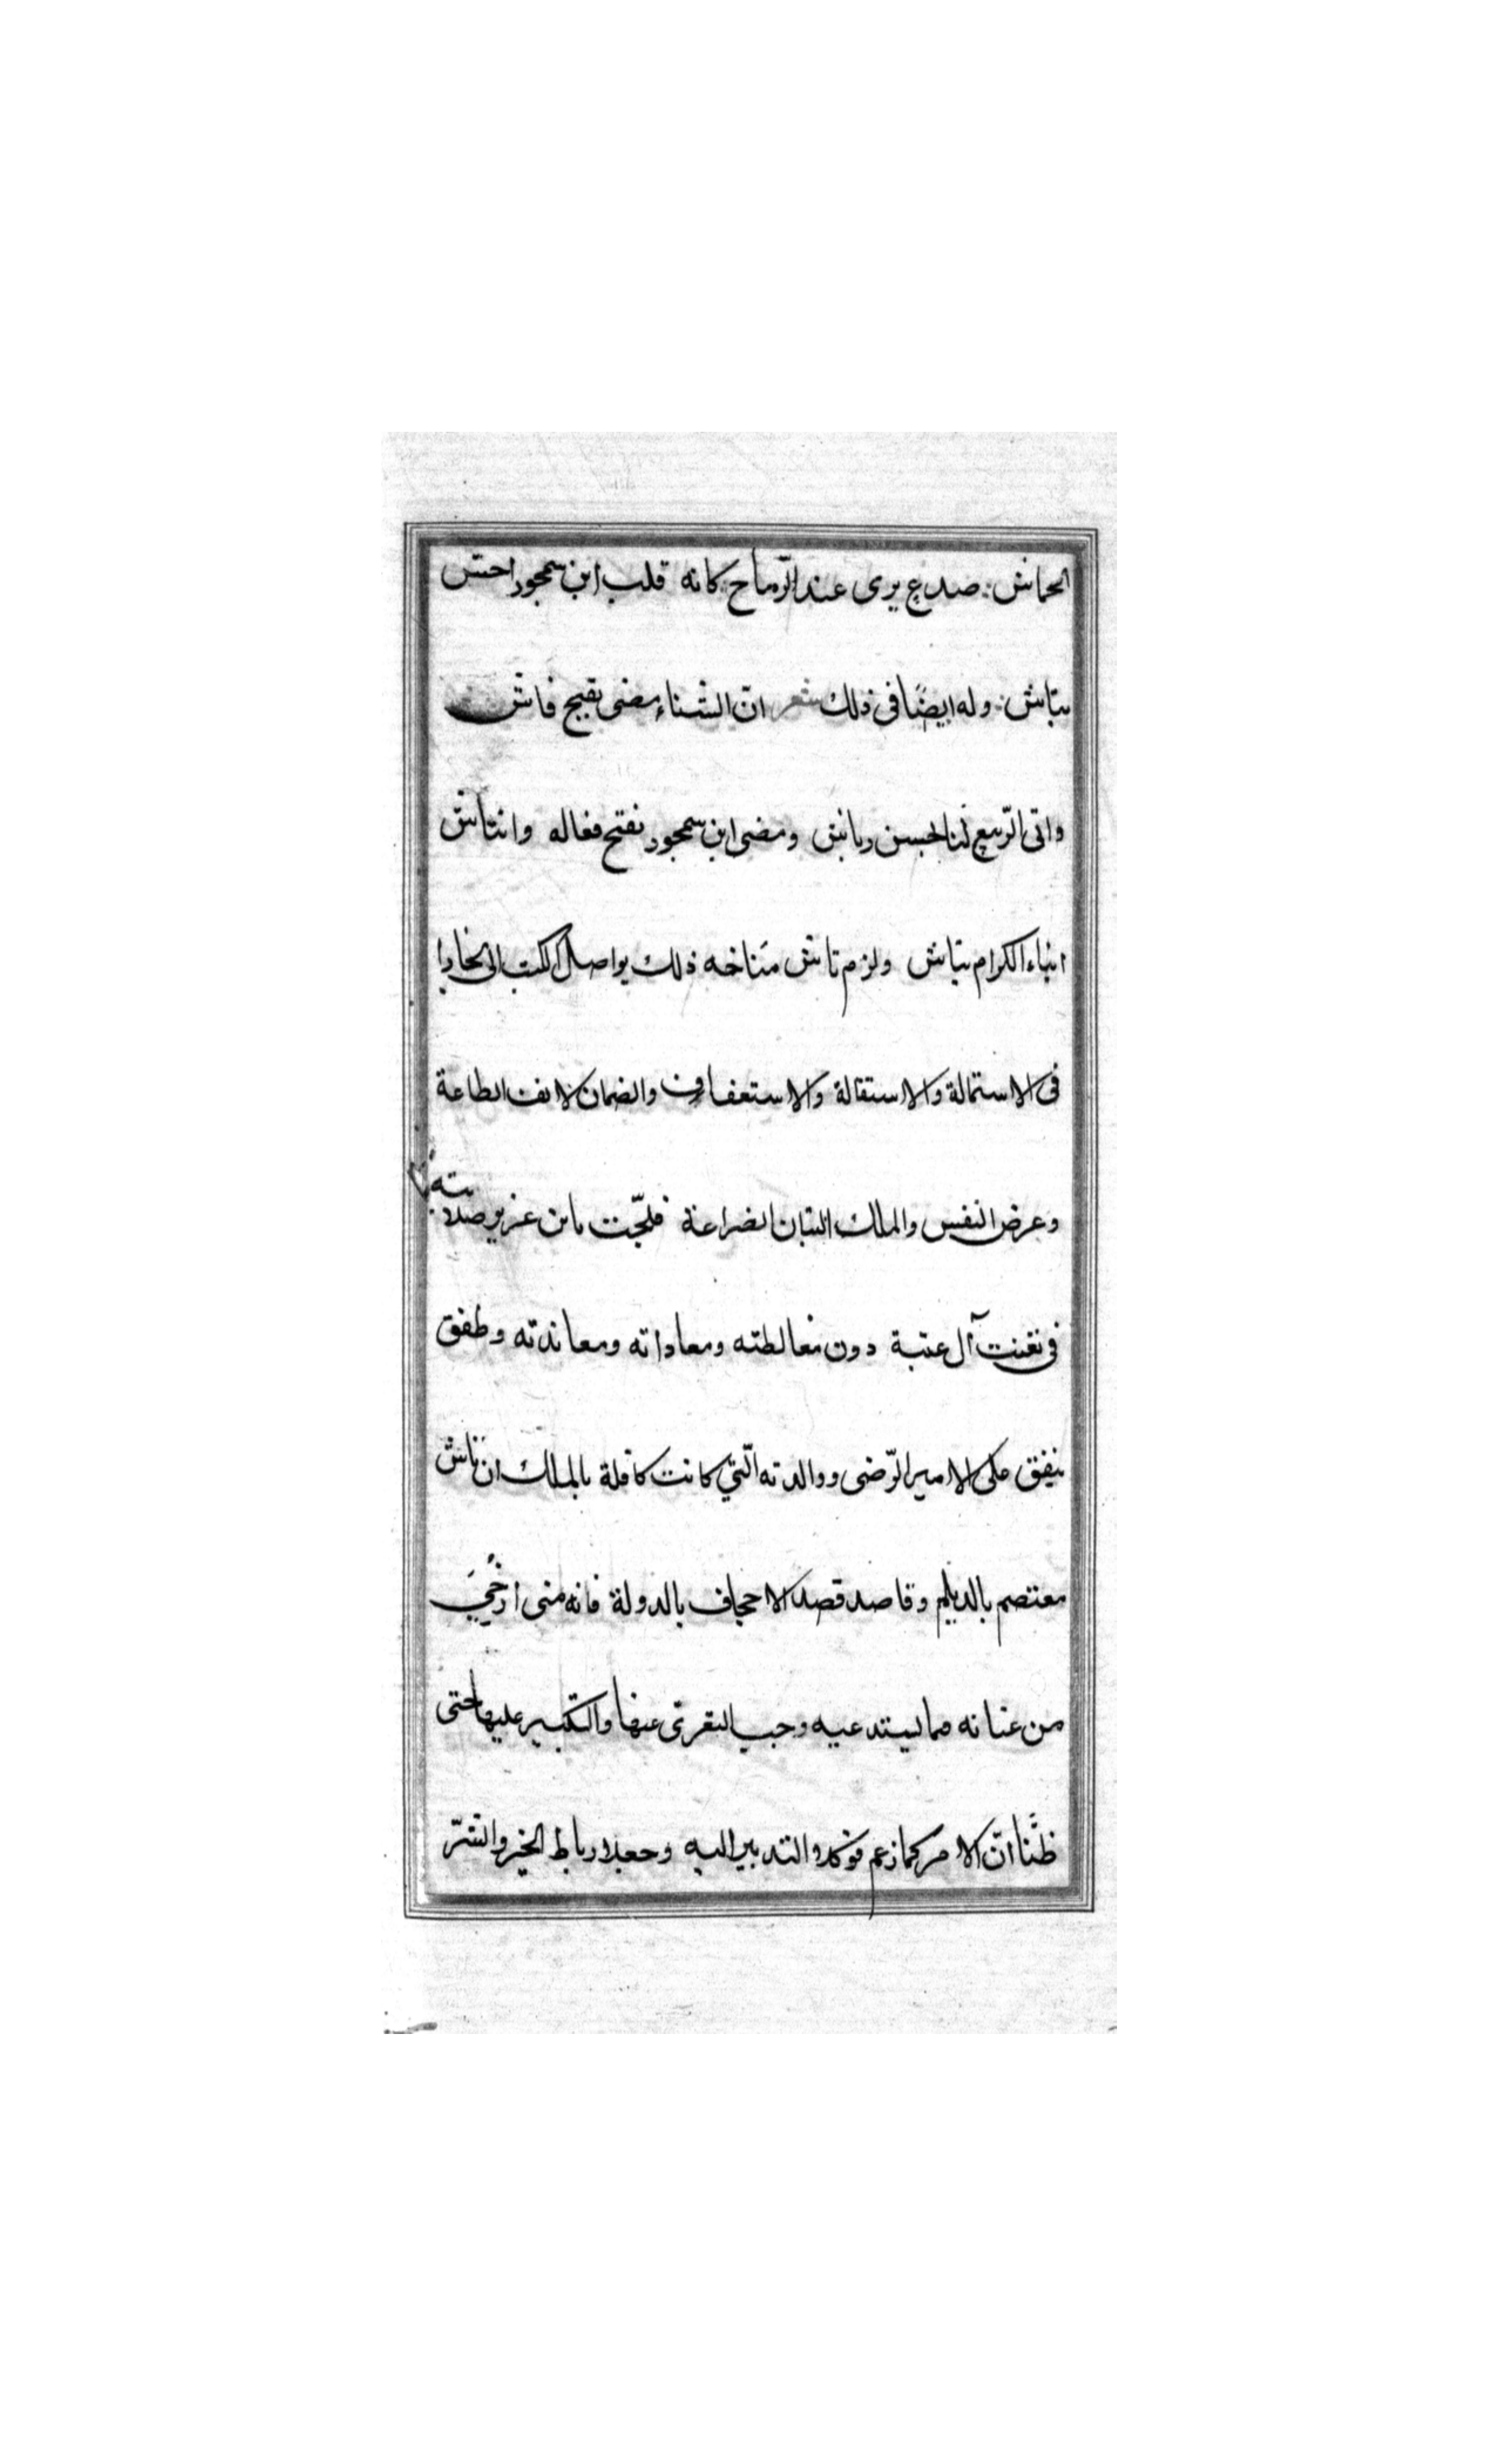 الحماش صدع يرى عند الرّماح كانه قلب ابن سمجور احسّ
بتاش وله ايضًا فى ذلك شعر انّ الشتاء مضى بقبيح فاش
واتى الرّبيع لنا لحسن رياش ومضى ابن سمجور بقبح فعاله وانتاش
ابناء الكرام بتاش ولزم تاش مناخه ذلك يواصل الكتب الى بخارا
فى الاستمالة والاستقالة والاستعفا والضمان لانف الطاعة
وعرض النفس والملك الضراعة فلجّت بابن عزير صلابته
فى آل عتبة دون مغالطته ومعاداته ومعاندته وطفق
ينفق على الامير الرّضى ووالدته الّتي كانت كافلة بالملك ان تاش
معتصم بالديلم وقاصد قصد الاحجاف بالدولة فانه متى ارخي
من عنانه مما يستدعيه وجب التعرى عنها والتكبير عليها حتى
ظنّا انّ الامر كما زعم فوكلا التدبير اليه وجعلا رباط الخير والشرّ